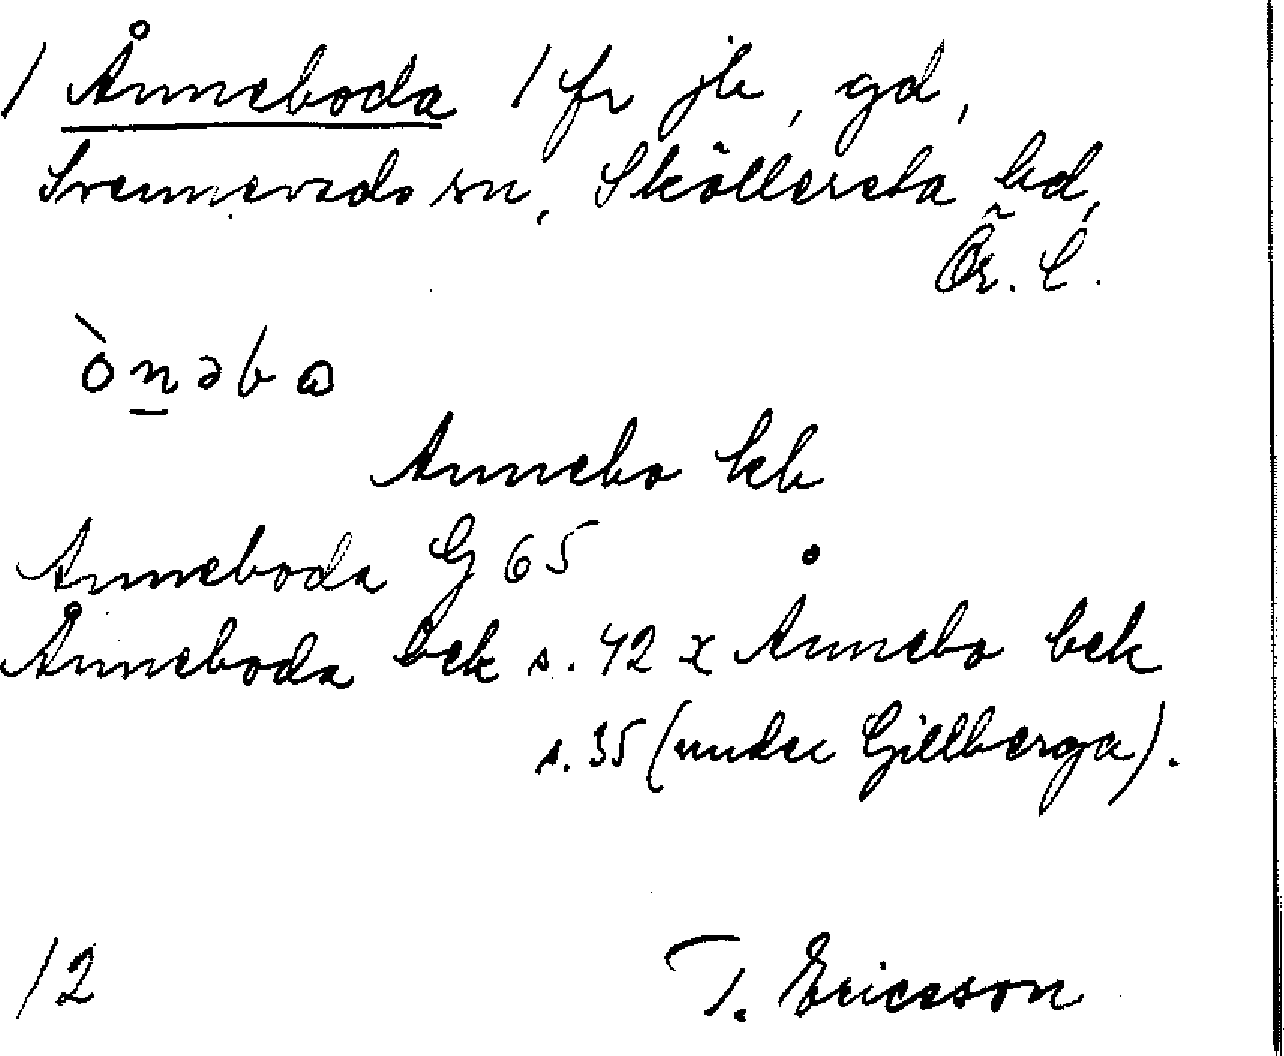 / Ånneboda / fr jb, gd,
Svennevads sn, Sköllersta hd,
Ör. l.
ònəbɷ
Annebo kb
Anneboda G 65
Ånneboda bek s. 42 x Ånnebo bek
s. 35 (under Gillberga).
/2 T. Ericsson